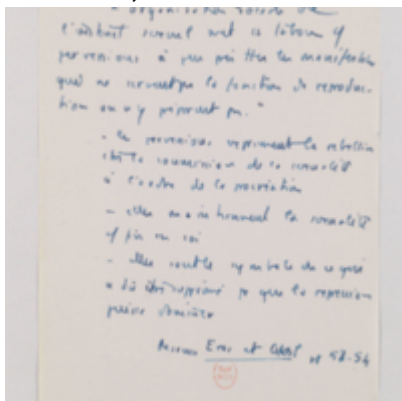 organisation sociale de
l'instinct sexuel met
perversions à peu près ttes les manifestations
qui ne servent pas la fonction de reproduc-
tion ou n'y préparent pas."
- les perversions expriment la rebellion
contre la soumission de la sexualité
à l'ordre de la procréation
- elles maintiennent la sexualité
fin en soi
- elles sont le symbole de ce qui
a dû être supprimé pr que la repression
puisse
Marcuse Eros et 53-54